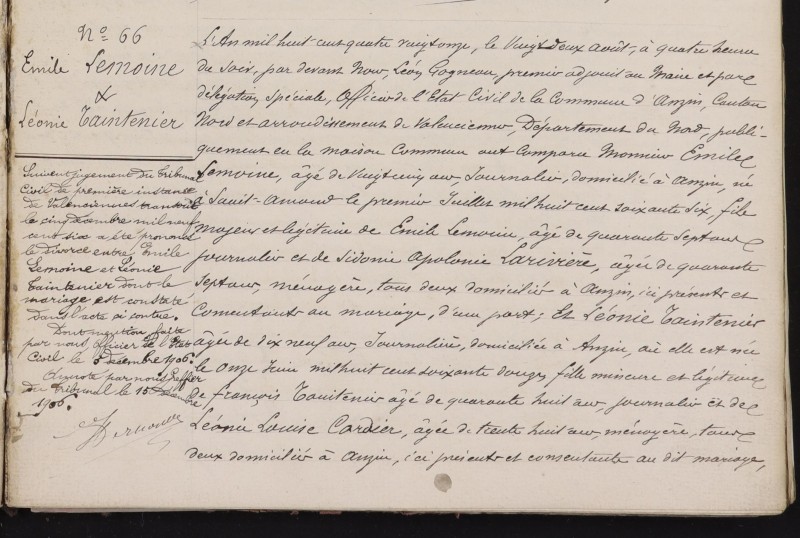 No 66
Emile Lemoine
&
Léonie Taintenier
Suivant jugement du Tribunal
Civil de première instance
de Valenciennes transcrit
le cinq décembre mil neuf
cent six a été prononcé
le divorce entre Emile
Lemoine et Léonie
Taintenier dont le
mariage est constaté
dans l'acte ci contre.
Dont mention faite
par nous, Officier de l'Etat
Civil le 8 décembre 1906.
par nous Greffier
du Tribunal le 15 Décembre
1906.
L'An mil huit cent quatre vingt onze, le Vingt deux août, à quatre heures
du soir, par devant Nous, Léon Gogneau, premier adjoint au Maire et par
délégation spéciale, Officier de l'Etat Civil de la Commune d'Anzin, Canton
Nord et arrondissement de Valenciennes, Département du Nord, publi-
quement en la maison Commune ont comparu Monsieur Emile
Lemoine, âgé de Vingt cinq ans, Journalier, domicilié à Anzin, né
à Saint-Amand le premier Juillet mil huit cent soixante six, fils
majeur et légitime de Emile Lemoine, âgé de quarante sept ans
journalier et de Sidonie Apolonie Larivière, âgée de quarante
sept ans, ménagère, tous deux domiciliés à Anzin, ici présents et
Consentants au mariage, d'une part; Et Léonie Taintenier
âgée de dix neuf ans, Journalière, domiciliée à Anzin, où elle est née
le onze Juin mil huit cent soixante douze, fille mineure et légitime
de françois Taintenier âgé de quarante huit ans, journalier et de
Léonie Louise Cordier, âgée de trente huit ans, ménagère, tous
deux domiciliés à Anzin, ici présents et consentants au dit mariage,